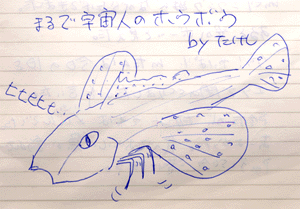 まるで宇宙人のホウボウ
by たけし
ヒヒヒヒヒ…